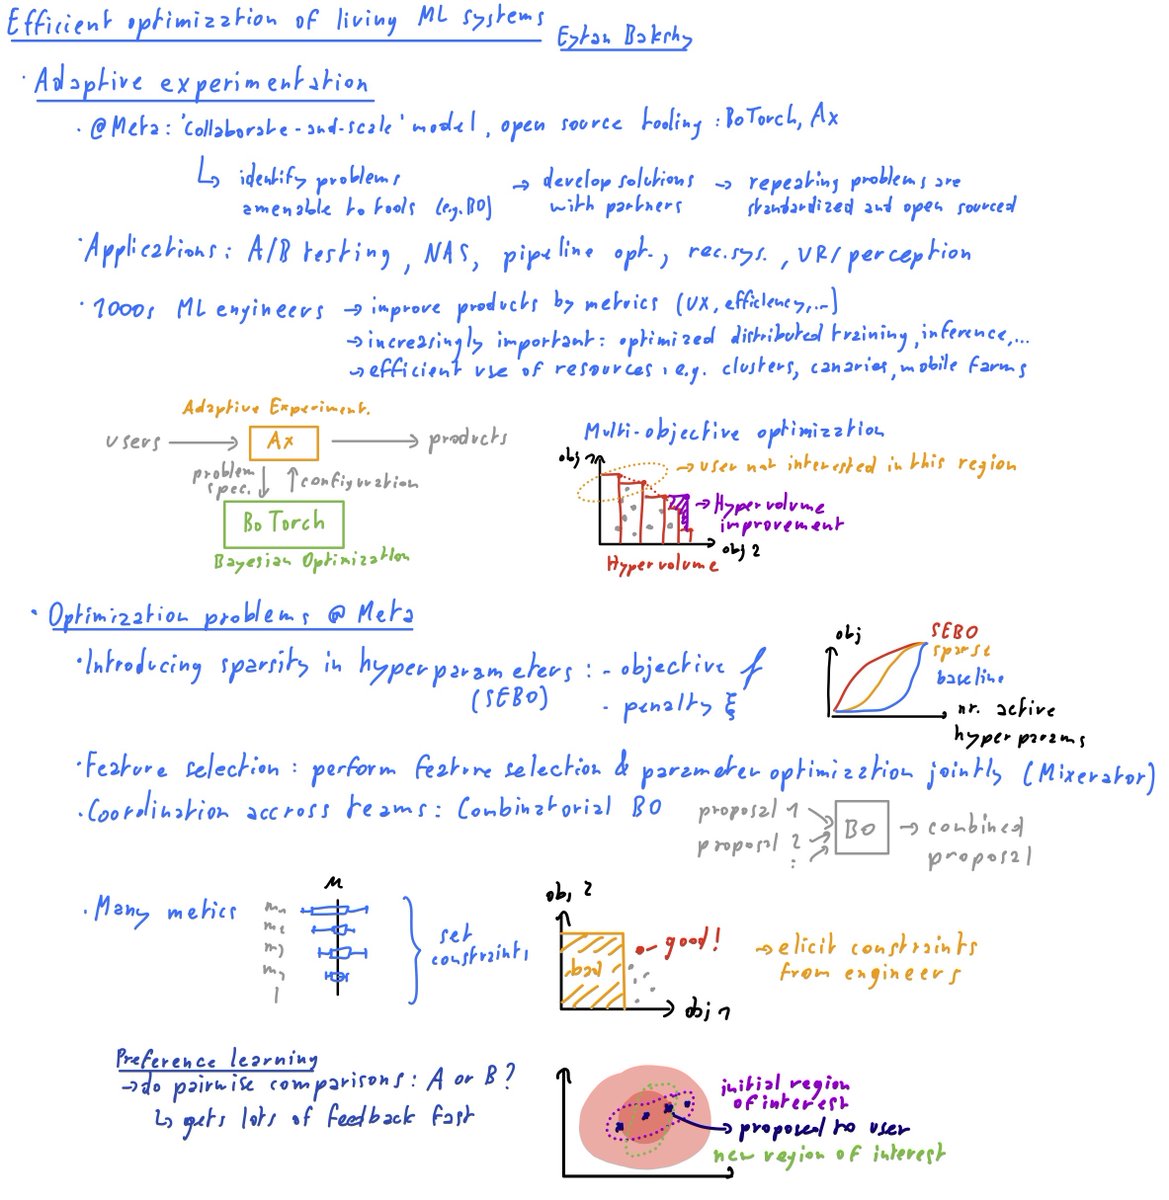 Efficient optimization of living ML systems Eytan Bakshy
· Adaptive experimentation
· @Meta: 'collaborate-and-scale' model, open source tooling : BoTorch, Ax
↳ identify problems → develop solutions → repeating problems are
amenable to tools (e.g. BO) with partners standardized and open sourced
· Applications: A/B testing, NAS, pipeline opt., rec.sys., VR/perception
· 1000s ML engineers → improve products by metrics (UX, efficiency,...)
→ increasingly important: optimized distributed training, inference,...
→ efficient use of resources, e.g. clusters, canaries, mobile farms
Adaptive Experiment.
users → Ax → products
problem spec. ↓ ↑ configuration
BoTorch
Bayesian Optimization
Multi-objective optimization
obj 1
→ user not interested in this region
→ Hypervolume
improvement
obj 2
Hypervolume
· Optimization problems @ Meta
· Introducing sparsity in hyperparameters : - objective f
(SEBO) - penalty ξ
obj
SEBO
sparse
baseline
nr. active
hyperparams
· Feature selection : perform feature selection & parameter optimization jointly (Mixerator)
· Coordination accross teams: Combinatorial BO
proposal 1
proposal 2
:
BO → combined
proposal
· Many metics
μ
m₁
m₂
m₃
m₄
set
constraints
obj 2
bad
good!
obj 1
→ elicit constraints
from engineers
Preference learning
→ do pairwise comparisons: A or B?
↳ gets lots of feedback fast
initial region
of interest
→ proposed to user
new region of interest